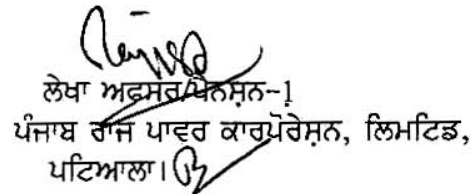 ਲੇਖਾ ਅਫਸਰ/ਪੈਨਸ਼ਨ-1
ਪੰਜਾਬ ਰਾਜ ਪਾਵਰ ਕਾਰਪੋਰੇਸ਼ਨ, ਲਿਮਟਿਡ,
ਪਟਿਆਲਾ।